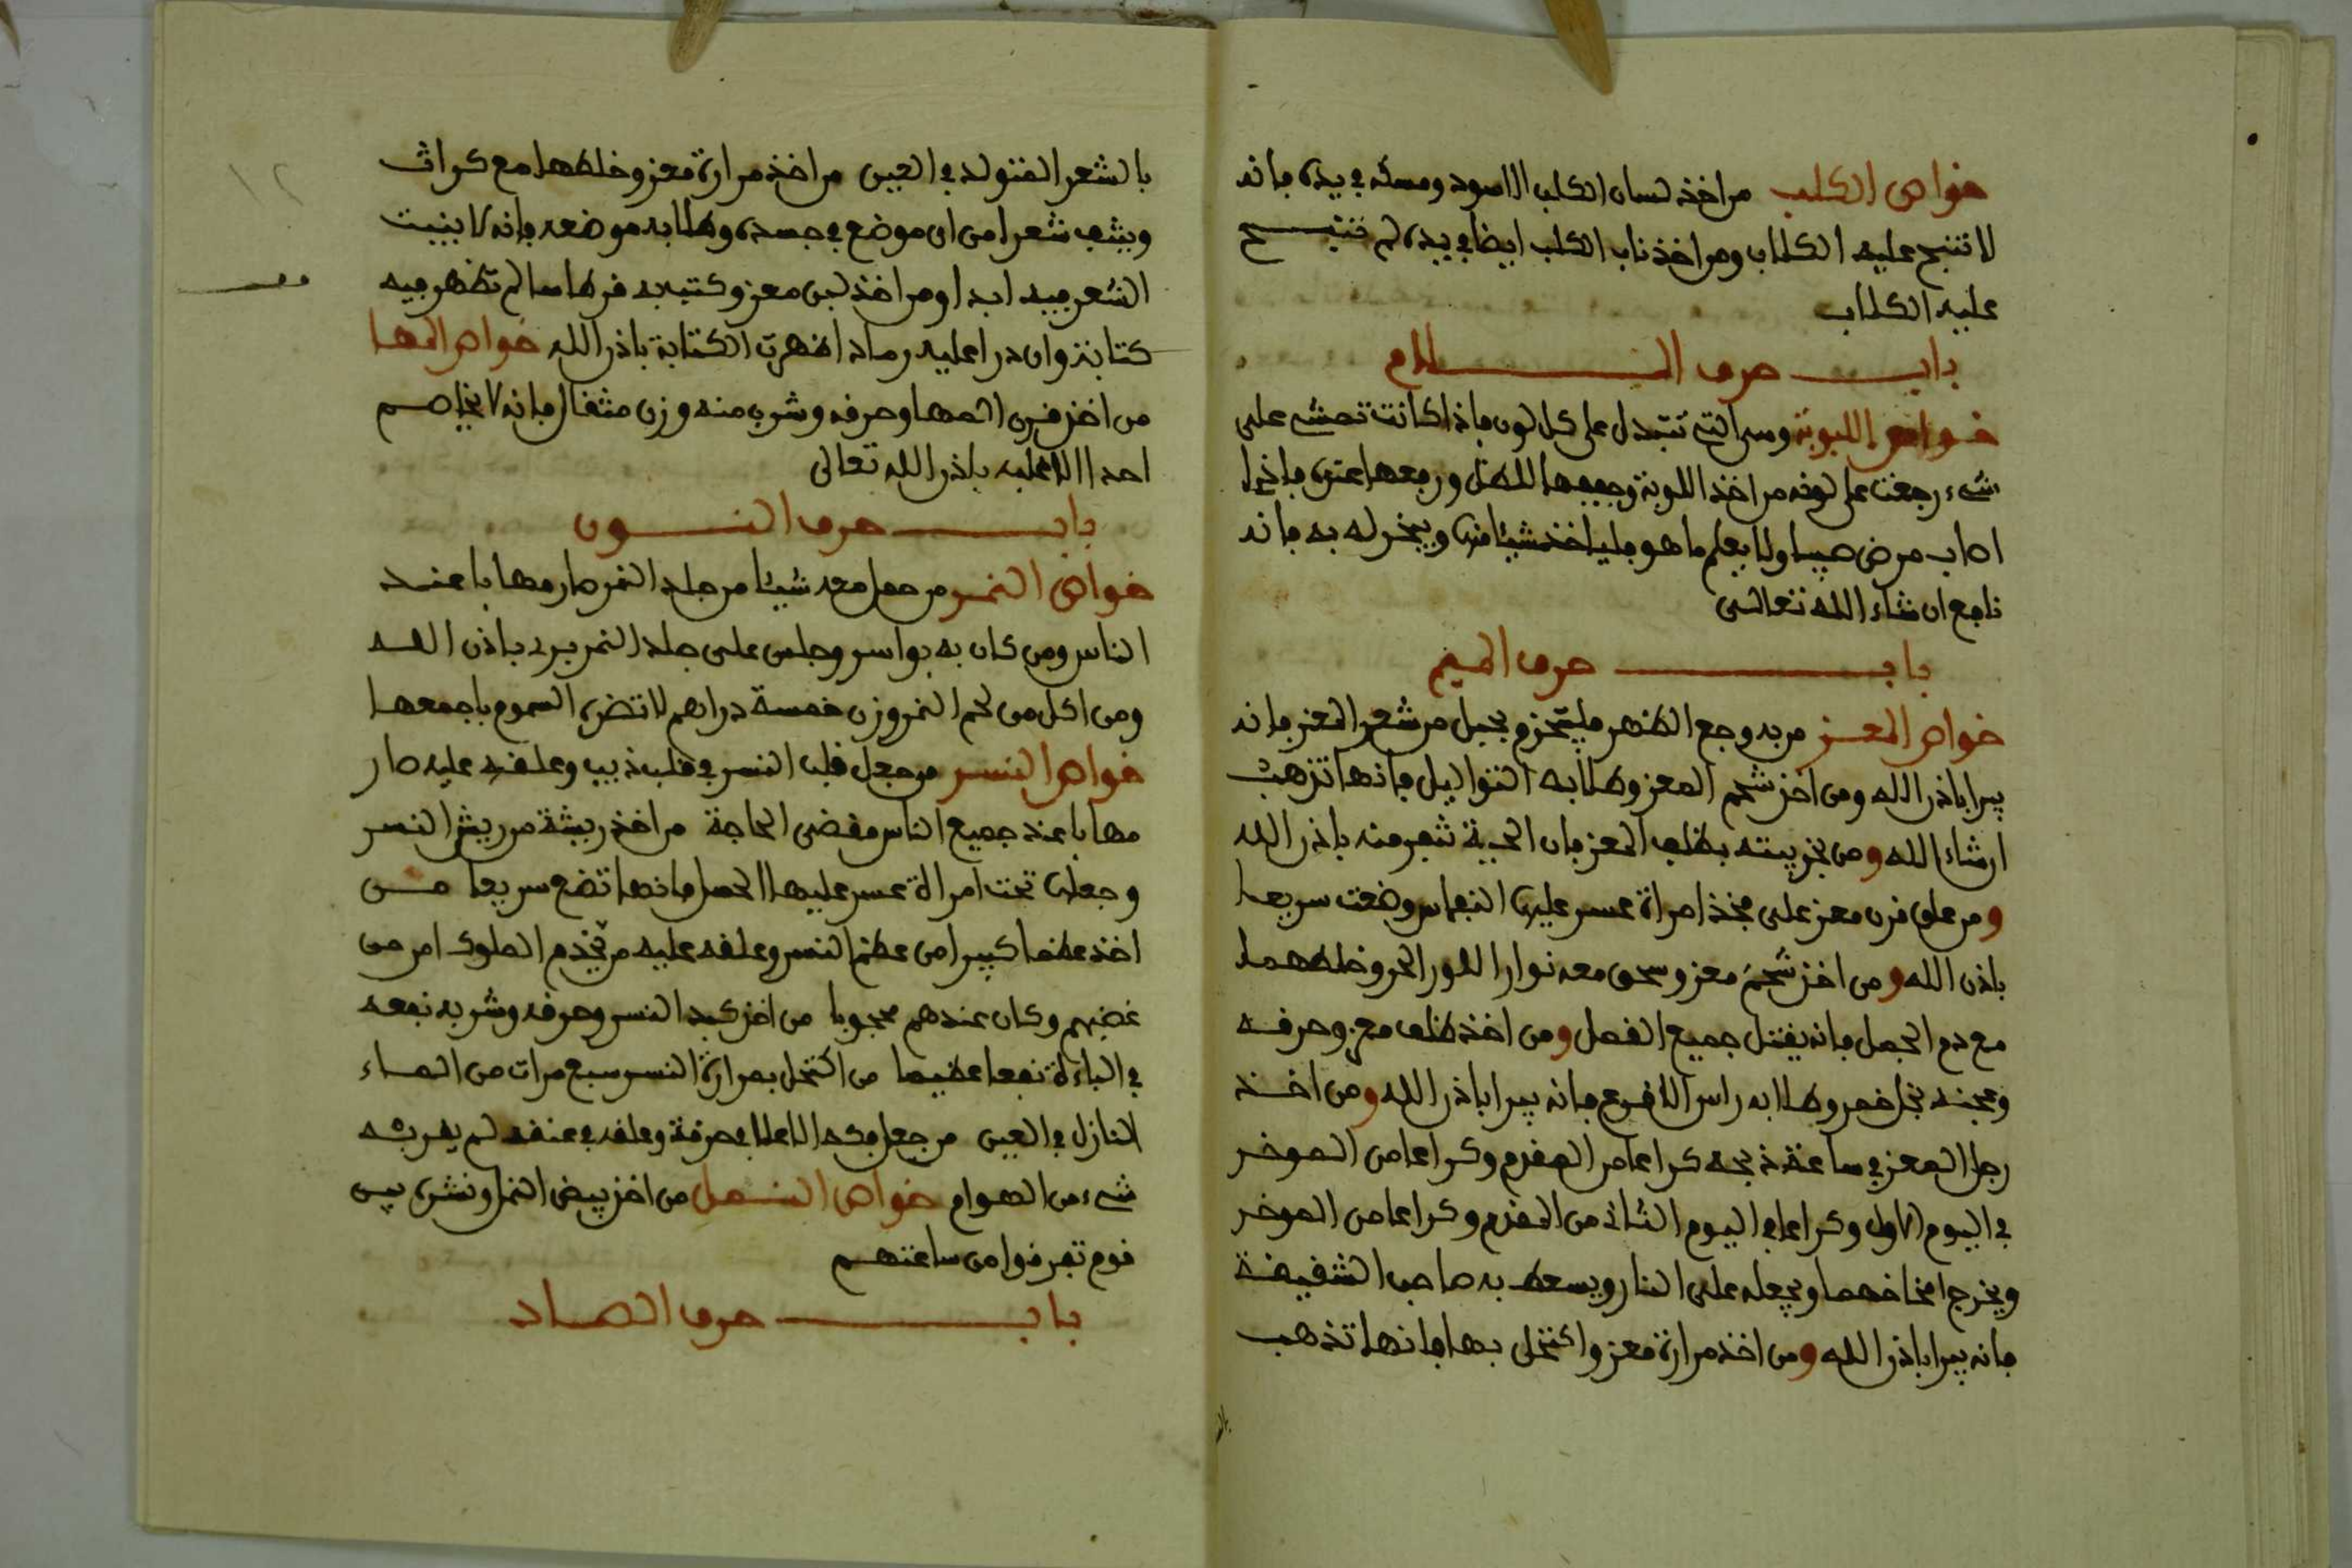 خواص الكلب من اخذ لسان الكلب الاسود ومسكه في يده فانه
لا تنبح عليه الكلاب ومن اخذ ناب الكلب ايضا في يده لم تنبح
عليه الكلاب
باب حرف اللام
خواص اللبوية وهي التي تتبدل على كل لون فاذا كانت تمشي على
شيء رجعت على لونه من اخذ اللوبة وجففها للظل ورفعها عنده فاذا
اصاب مرض صبيا ولا يعلم ما هو فلياخذ شيئا منها ويبخر له به فانه
نافع ان شاء الله تعالى
باب حرف الميم
خواص المعز من به وجع الظهر فليتحزم بحبل من شعر المعز فانه
يبرا باذن الله ومن اخذ شحم المعز وطلا به الثواليل فانها تذهب
ان شاء الله ومن بخر بيته بظلف المعز فان الحية تفر منه باذن الله
ومن علق قرن معز على فخذ امراة عسر عليها النفاس وضعت سريعا
باذن الله ومن اخذ شحم معز وسحق معه نوار الحر وخلطهما
مع دم الجمل فانه يقتل جميع القمل ومن اخذ ظلف معز وحرقه
وعجنه بخل خمر وطلا به راس الاقرع فانه يبرا باذن الله ومن اخذ
رجل المعز في ساعة ذبحه كراعا من المقدم وكراعا من الموخر
في اليوم الاول وكراعا في اليوم الثاني من المقدم وكراعا من الموخر
ويخرج امخاخهما ويجعله على النار ويسعط به صاحب الشقيقة
فانه يبرا باذن الله ومن اخذ مرارة معز واكتحل بها فانها تذهب
بالشعر المتولد في العين من اخذ مرارة معز وخلطها مع كراث
وينتف شعرا من اي موضع في جسده وطلا به موضعه فانه لا ينبت
الشعر فيه ابدا ومن اخذ لبن معز وكتب به قرطاسا لم تظهر فيه
كتابة وان درا عليه رماد اظهرت الكتابة باذن الله خواص المها
من اخذ قرن المها وحرقه وشرب منه وزن مثقال فانه لا يخاصم
احدا الا غلبه باذن الله تعالى
باب حرف النون
خواص النمر من حمل معه شيئا من جلد النمر صار مهابا عند
الناس ومن كان به بواسر وجلس على جلد النمر برء باذن الله
ومن اكل من لحم النمر وزن خمسة دراهم لا تضره السموم باجمعها
خواص النسر من جعل قلب النسر في قلب ذيب وعلقه عليه صار
مهابا عند جميع الناس مقضى الحاجة من اخذ ريشة من ريش النسر
وجعلها تحت امراة عسر عليها الحمل فانها تضع سريعا من
اخذ عظما كبيرا من عظم النسر وعلقه عليه من يخدم الملوك امن من
غضبهم وكان عندهم محبوبا من اخذ كبد النسر وحرقه وشربه نفعه
في الباءة نفعا عظيما من اكتحل بمرارة النسر سبع مرات من الماء
النازل في العين من جعل فكه الاعلا في خرقة وعلقه في عنقه لم يقربه
شيء من الهوام خواص النمل من اخذ بيض النمل ونشره بين
قوم تفرقوا من ساعتهم
باب حرف الصاد
١٢